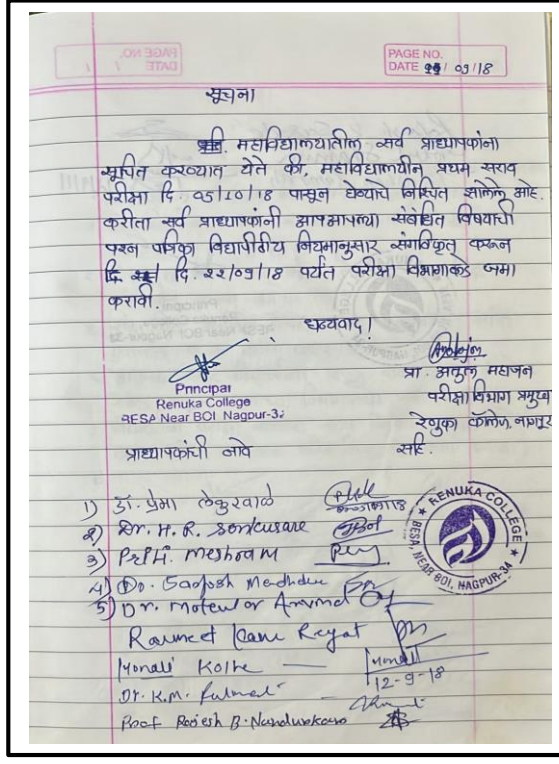 PAGE NO.
DATE / /
PAGE NO.
DATE 11/09/18
सूचना
महाविद्यालयातील सर्व प्राध्यापकांना
सूचित करण्यात येते की, महाविद्यालयीन प्रथम सराव
परीक्षा दि. 05/10/18 पासून घेण्याचे निश्चित झालेले आहे.
करीता सर्व प्राध्यापकांनी आपआपल्या संबंधित विषयाची
प्रश्न पत्रिका विद्यापीठीय नियमानुसार संगणिकृत करून
दि. २२/०९/18 पर्यंत परीक्षा विभागाकडे जमा
करावी.
धन्यवाद!
Principal
Renuka College
BESA Near BOI Nagpur-34
प्रा. अतुल महाजन
परीक्षा विभाग प्रमुख
रेणुका कॉलेज, नागपूर
प्राध्यापकांची नावे
सहि.
1) डॉ. प्रेमा लेकुरवाळे
2) Dr. H. R. Sonkusare
3) P.H. Meshram
4) Dr. Santosh
5) Dr. Motewar Arvind
Ravneet Kaur Reyat
Monali Kolhe — Monali
12-9-18
Dr. K.M. Fulmali
Prof Rajesh B. Nandurkar
RENUKA COLLEGE
BESA, NEAR BOI, NAGPUR-34